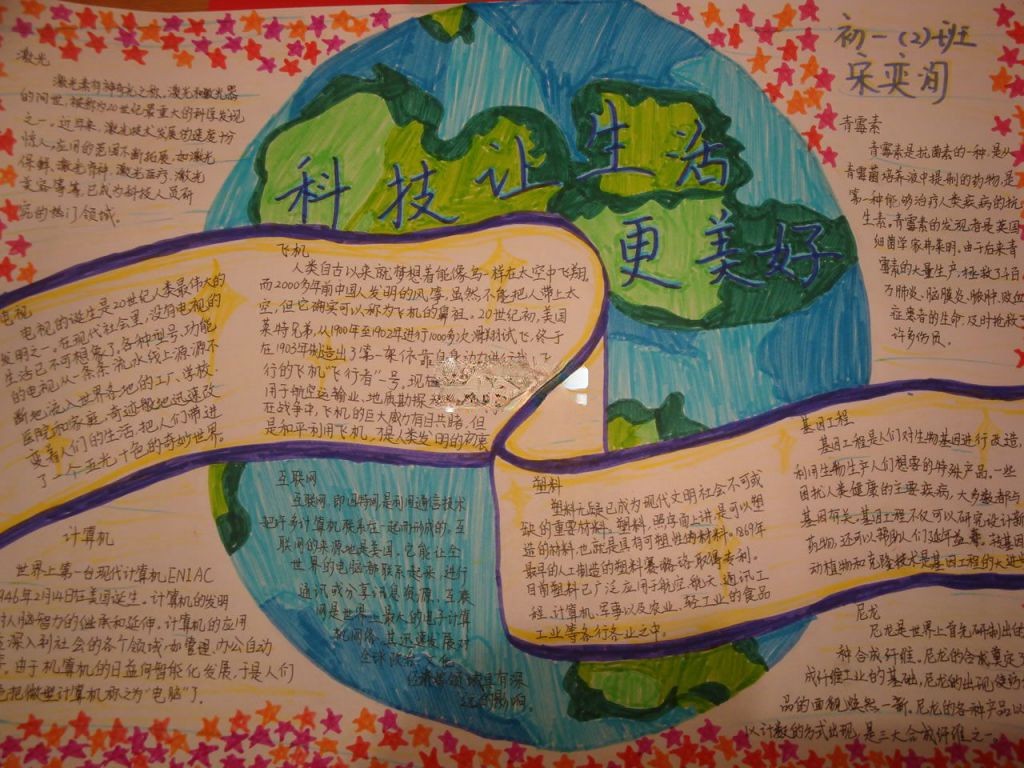 科技让生活
更美好
初一(2)班
激光
激光素有神奇光之称,激光和激光器
的问世,被称为20世纪最重大的科学发现
之一。近年来,激光技术发展的速度十分
惊人,应用的范围不断拓展,如激光
保鲜,激光育种,激光医疗,激光
等等,已成为科技人员研
究的热门领域。
电视
电视的诞生是20世纪人类最伟大的
发明之一。在现代社会里,没有电视的
生活已不可想象了。各种型号,功能
的电视从一条条流水线上源源不
断地流入世界各地的工厂、学校、
医院和家庭,奇迹般地迅速改
变着人们的生活,把人们带进
了一个五光十色的奇妙世界。
飞机
人类自古以来就梦想着能像鸟一样在太空中飞翔。
而2000多年前中国人发明的风筝,虽然不能把人带上太
空,但它确实可以称为飞机的鼻祖。20世纪初,美国
莱特兄弟,从1900年至1902年进行1000多次滑翔试飞,终于
在1903年制造出了第一架依靠自身动力进行载人飞
行的飞机“飞行者”一号,现在
用于航空运输业,地质勘探
在战争中,飞机的巨大威力有目共睹,但
是和平利用飞机,才是人类发明的初衷
青霉素
青霉素是抗菌素的一种,是从
青霉菌培养液中提制的药物,是
第一种能够治疗人类疾病的抗
生素。青霉素的发现者是英国
细菌学家弗莱明,由于后来青
霉素的大量生产,拯救了千百
万肺炎、脑膜炎、脓肿、败血
症患者的生命,及时抢救了
许多伤员。
计算机
世界上第一台现代计算机ENIAC
1946年2月14日在美国诞生。计算机的发明
人脑智力的继承和延伸。计算机的应用
深入到社会的各个领域,如管理,办公自动
由于机算机的日益向智能化发展,于是人们
把微型计算机称之为“电脑”了。
互联网
互联网,即因特网是利用通信技术
把许多计算机联系在一起而形成的。互
联网的来源地是美国。它能让全
世界的电脑都联系起来,进行
通讯或分享讯息资源,互联
网是世界上最大的电子计算
机网络,其迅速发展对
全球政治、文化、
经济等领域具有深
远的影响。
塑料
塑料无疑已成为现代文明社会不可或
缺的重要材料。塑料,照字面上讲是可以塑
造的材料,也就是具有可塑性的材料。1869年
最早的人工制造的塑料赛璐珞取得专利。
目前塑料已广泛应用于航空、航天、通讯工
程、计算机、军事以及农业、轻工业的食品
工业等各行各业之中。
基因工程
基因工程是人们对生物基因进行改造,
利用生物生产人们想要的特殊产品。一些
困扰人类健康的主要疾病,大多数都与
基因有关。基因工程不仅可以研究设计新
药物,还可以帮助人们延年益寿,转基因
动植物和克隆技术是基因工程的
尼龙
尼龙是世界上首先研制出的
种合成纤维。尼龙的合成奠定了
成纤维工业的基础,尼龙的出现使纺
品的面貌焕然一新,尼龙的各种产品以
以计数的方式出现,是三大合成纤维之一。